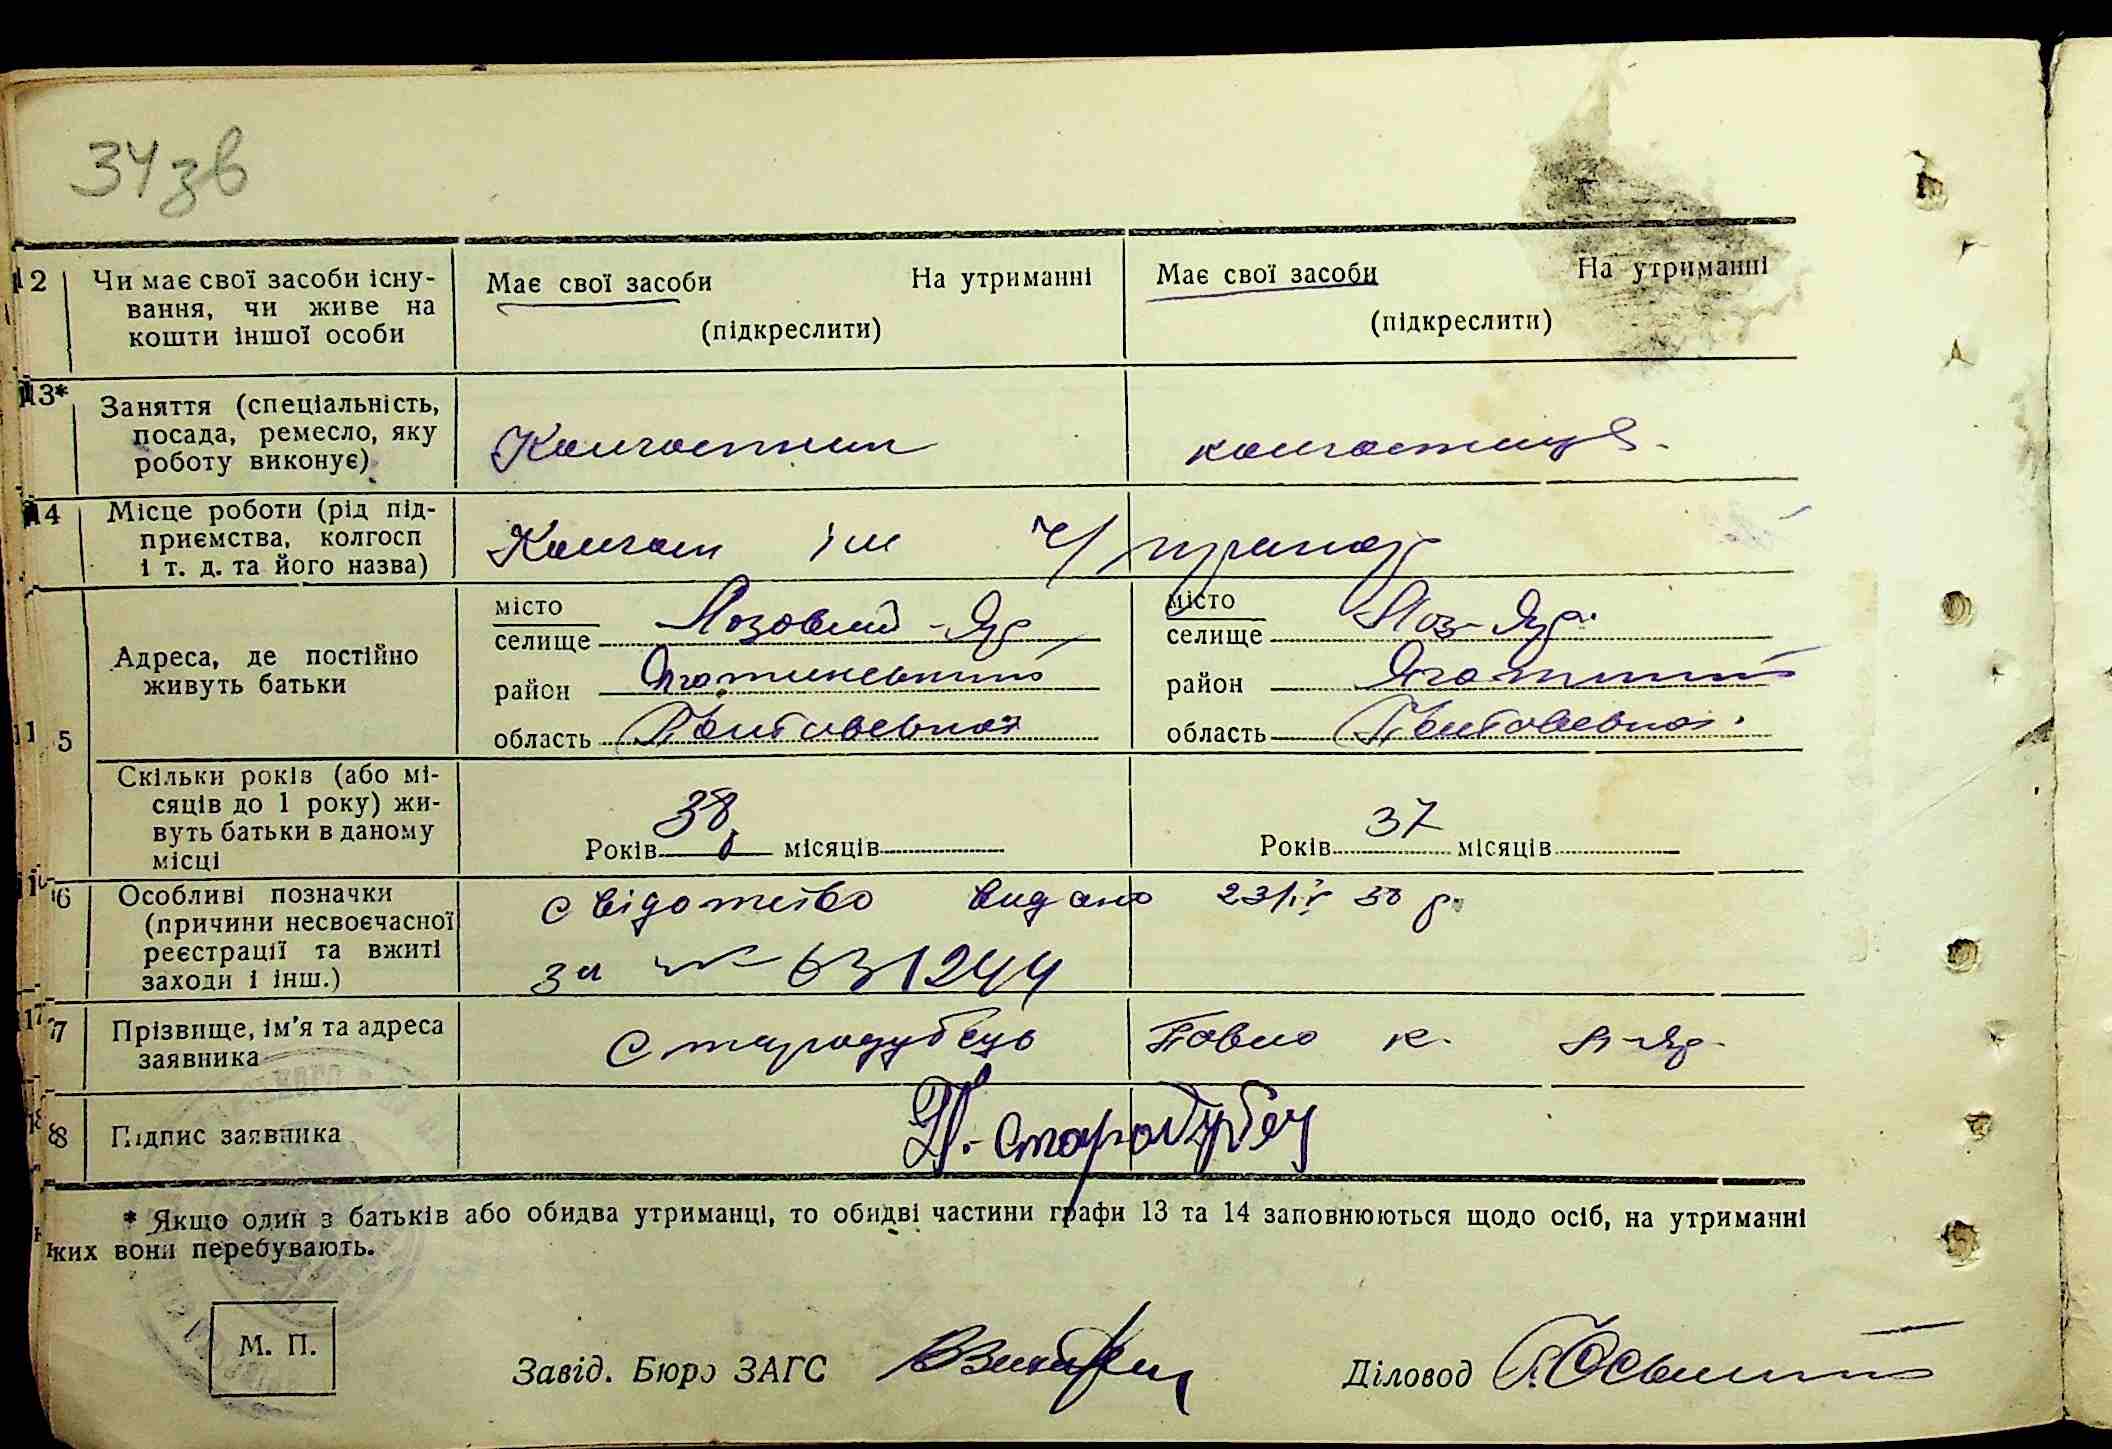 34зв
12 Чи має свої засоби існу-
вання, чи живе на
кошти іншої особи
Має свої засоби На утриманні
(підкреслити)
Має свої засоби На утриманні
(підкреслити)
13* Заняття (спеціальність,
посада, ремесло, яку
роботу виконує)
Колгоспник
колгоспниця.
14 Місце роботи (рід під-
приємства, колгосп
і т. д. та його назва)
Колгосп ім
15 Адреса, де постійно
живуть батьки
місто
селище Лозовий-Яр
район Яготинський
область Полтавська
місто
селище Лоз-Яр.
район Яготинський
область Полтавська.
Скільки років (або мі-
сяців до 1 року) жи-
вуть батьки в даному
місці
Років 38 місяців
Років 37 місяців
16 Особливі позначки
(причини несвоєчасної
реєстрації та вжиті
заходи і інш.)
свідотство видано 23/IV 38 р.
за № 631244
17 Прізвище, ім'я та адреса
заявника
Стародубець Павло К. Л-Яр.
18 Підпис заявника
П. Стародубец
* Якщо один з батьків або обидва утриманці, то обидві частини графи 13 та 14 заповнюються щодо осіб, на утриманні
яких вони перебувають.
М. П.
Завід. Бюро ЗАГС
Діловод